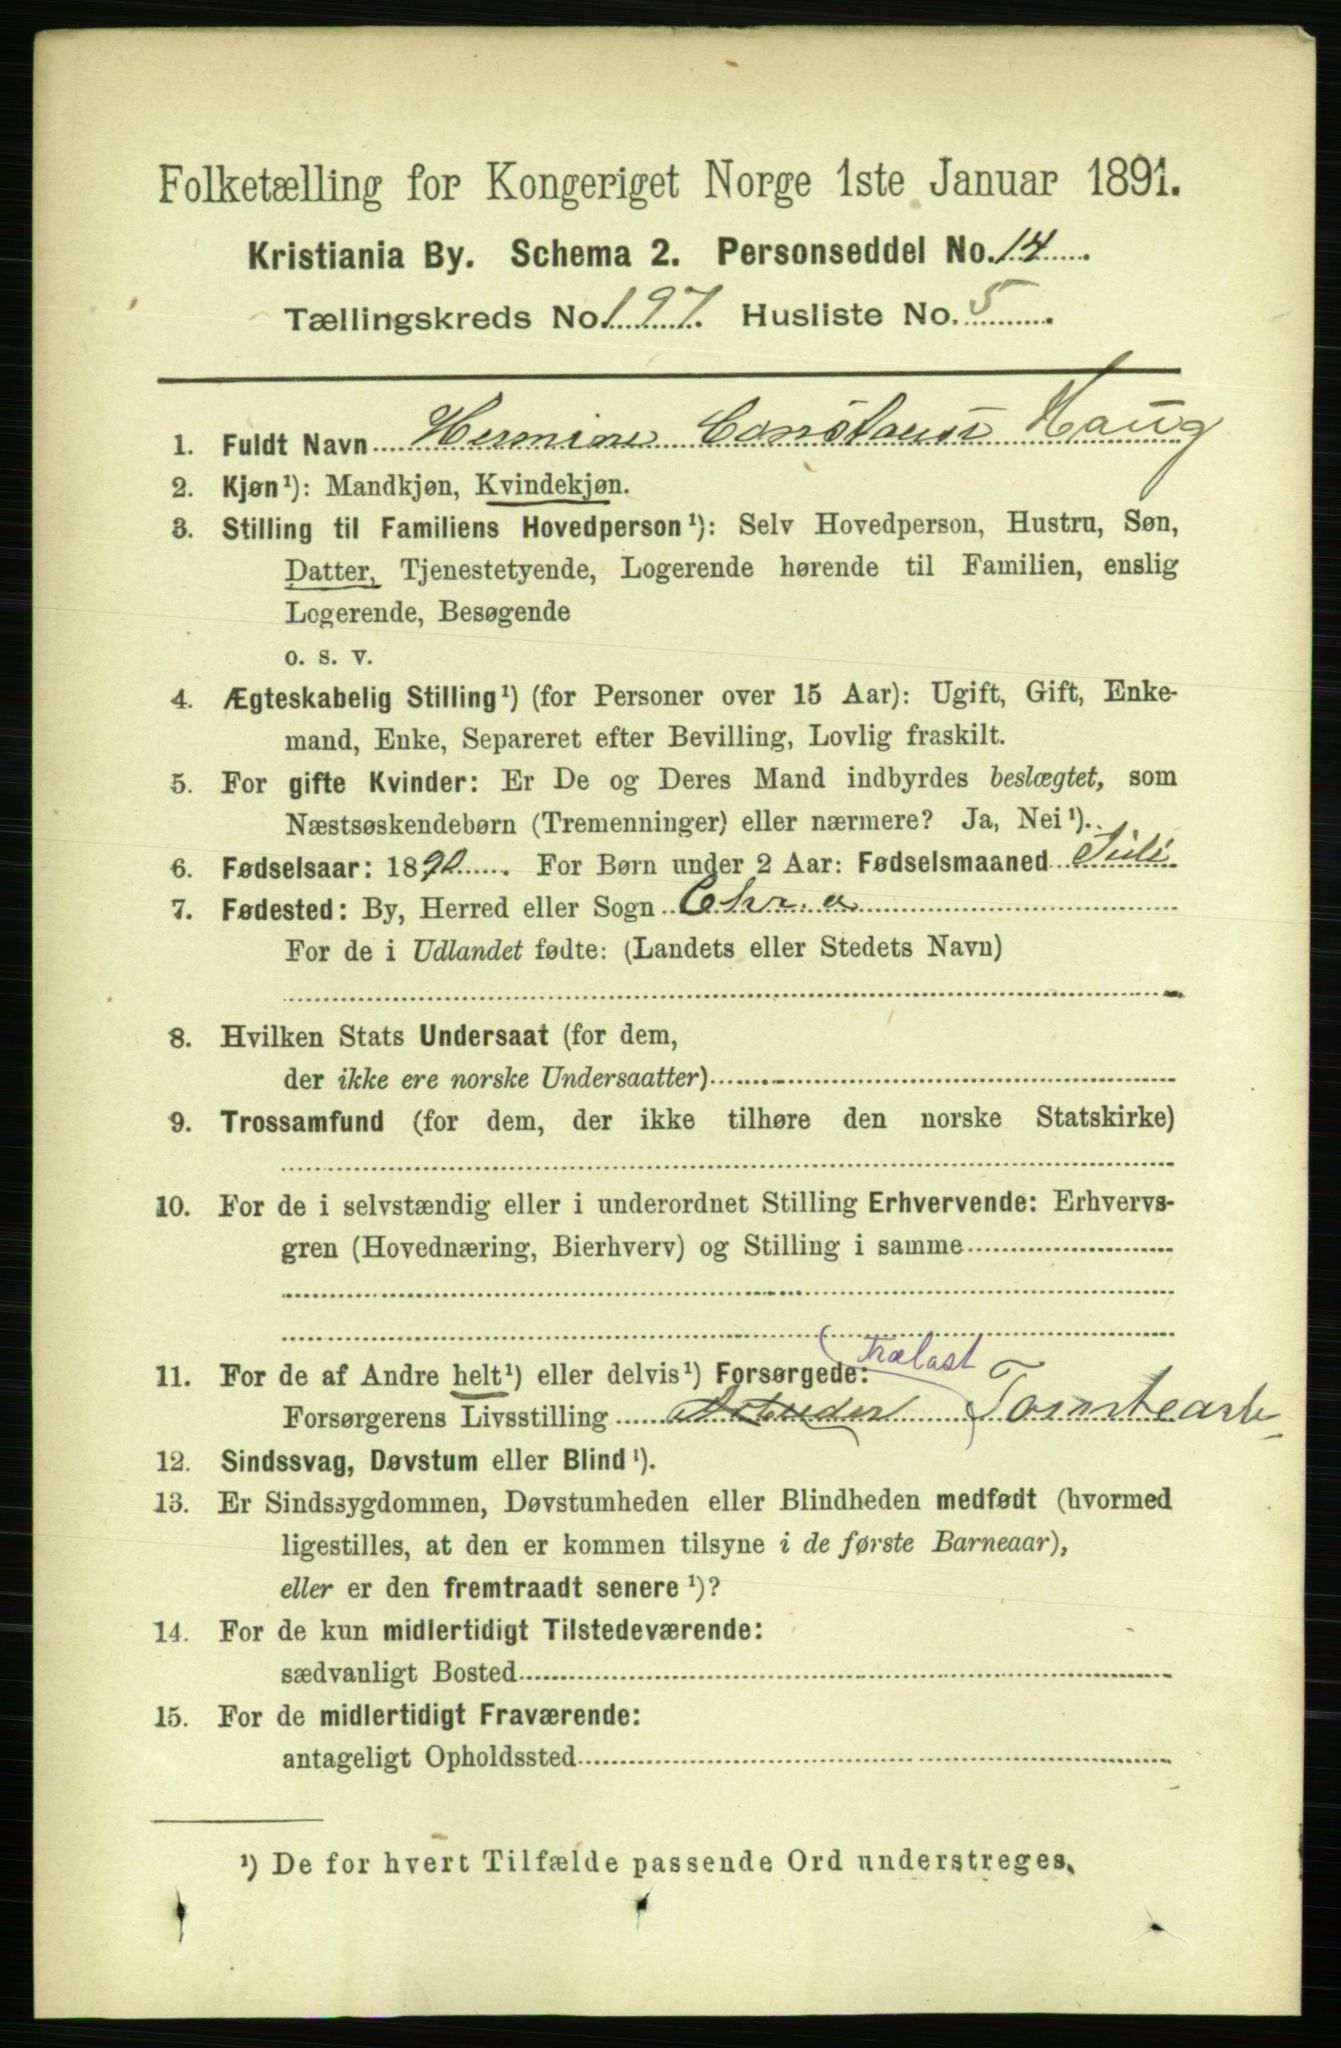 Folketælling for Kongeriget Norge 1ste Januar 1891.
Kristiania By. Schema 2. Personseddel No. 14.
Tællingskreds No. 197. Husliste No. 5.
1. Fuldt Navn Hermine Constanse Haug
2. Kjøn¹): Mandkjøn, Kvindekjøn.
3. Stilling til Familiens Hovedperson¹): Selv Hovedperson, Hustru, Søn,
Datter, Tjenestetyende, Logerende hørende til Familien, enslig
Logerende, Besøgende
o. s. v.
4. Ægteskabelig Stilling¹) (for Personer over 15 Aar): Ugift, Gift, Enke-
mand, Enke, Separeret efter Bevilling, Lovlig fraskilt.
5. For gifte Kvinder: Er De og Deres Mand indbyrdes beslægtet, som
Næstsøskendebørn (Tremenninger) eller nærmere? Ja, Nei¹).
6. Fødselsaar: 1890. For Børn under 2 Aar: Fødselsmaaned Juli
7. Fødested: By, Herred eller Sogn Chr.a
For de i Udlandet fødte: (Landets eller Stedets Navn)
8. Hvilken Stats Undersaat (for dem,
der ikke ere norske Undersaatter)
9. Trossamfund (for dem, der ikke tilhøre den norske Statskirke)
10. For de i selvstændig eller i underordnet Stilling Erhvervende: Erhvervs-
gren (Hovednæring, Bierhverv) og Stilling i samme
(Trælast
11. For de af Andre helt¹) eller delvis¹) Forsørgede:
Forsørgerens Livsstilling Tomtearb
12. Sindssvag, Døvstum eller Blind¹).
13. Er Sindssygdommen, Døvstumheden eller Blindheden medfødt (hvormed
ligestilles, at den er kommen tilsyne i de første Barneaar),
eller er den fremtraadt senere¹)?
14. For de kun midlertidigt Tilstedeværende:
sædvanligt Bosted
15. For de midlertidigt Fraværende:
antageligt Opholdssted
¹) De for hvert Tilfælde passende Ord understreges.